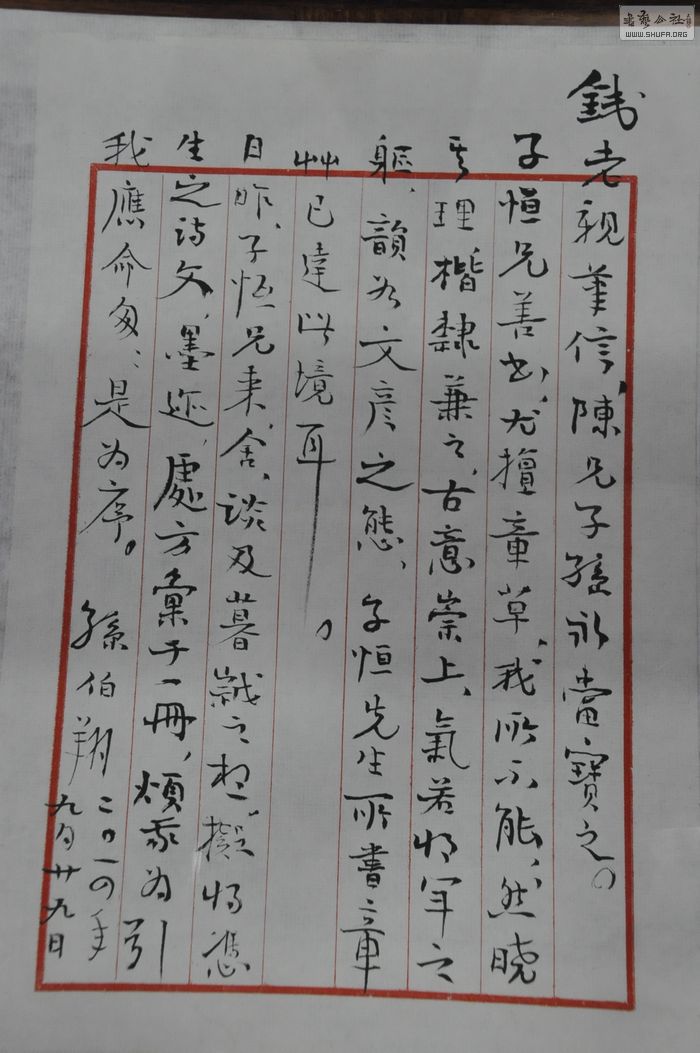 钱老親筆信,陳兄子孫永當寶之。
子恒兄善书,尤擅章草,我所不能,然晓
其理楷隸兼之,古意崇上,氣若将军之
軀,韻为文彦之態,子恒先生所書章
艸已達此境耳。
日昨,子恒兄来舍,谈及暮诞之想,擬将
生之诗文,墨迹,處方彙于一冊,煩我为引
我應命匆匆是为序。
孫伯翔二〇一四年
九月廿九日
書艺公社
WWW.SHUFA.ORG